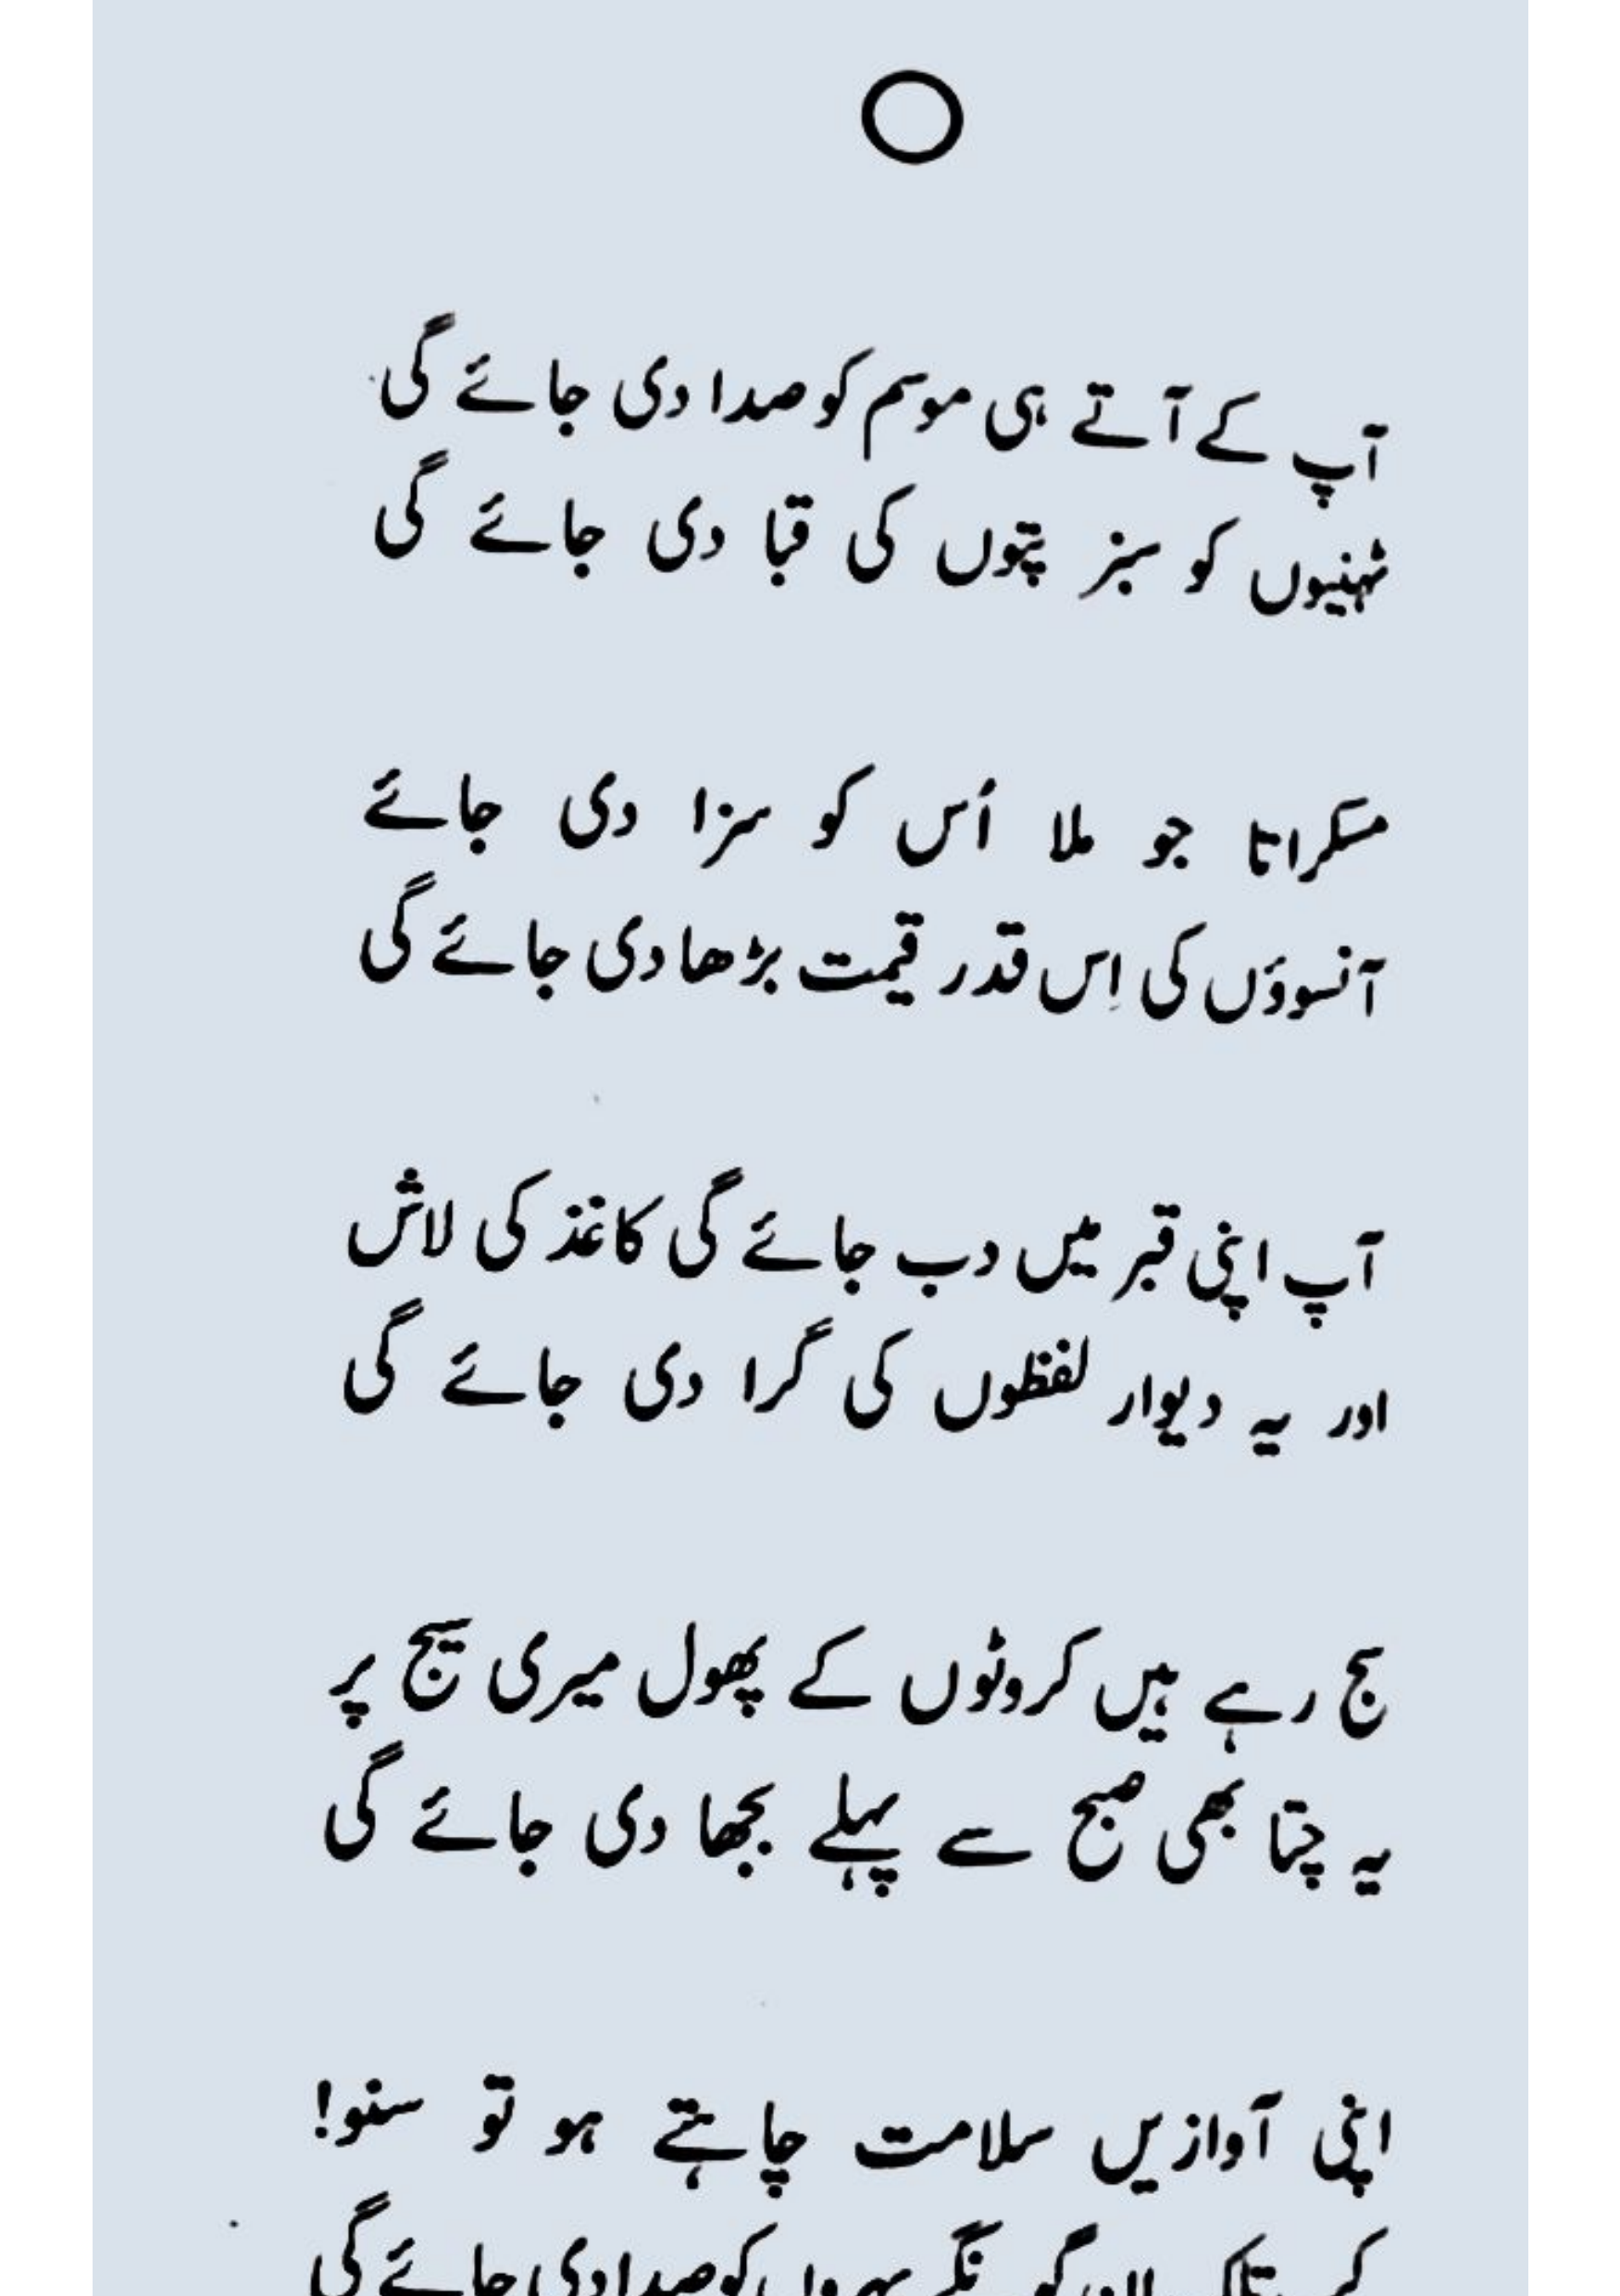 آپ کے آتے ہی موسم کو صدا دی جائے گی
ٹہنیوں کو سبز پتوں کی قبا دی جائے گی
مسکراتا جو ملا اُس کو سزا دی جائے
آنسوؤں کی اِس قدر قیمت بڑھا دی جائے گی
آپ اپنی قبر میں دب جائے گی کاغذ کی لاش
اور یہ دیوار لفظوں کی گرا دی جائے گی
سج رہے ہیں کروٹوں کے پھول میری سیج پر
یہ چتا بھی صبح سے پہلے بجھا دی جائے گی
اپنی آوازیں سلامت چاہتے ہو تو سنو!
کب تلک ان گونگے بہروں کو صدا دی جائے گی